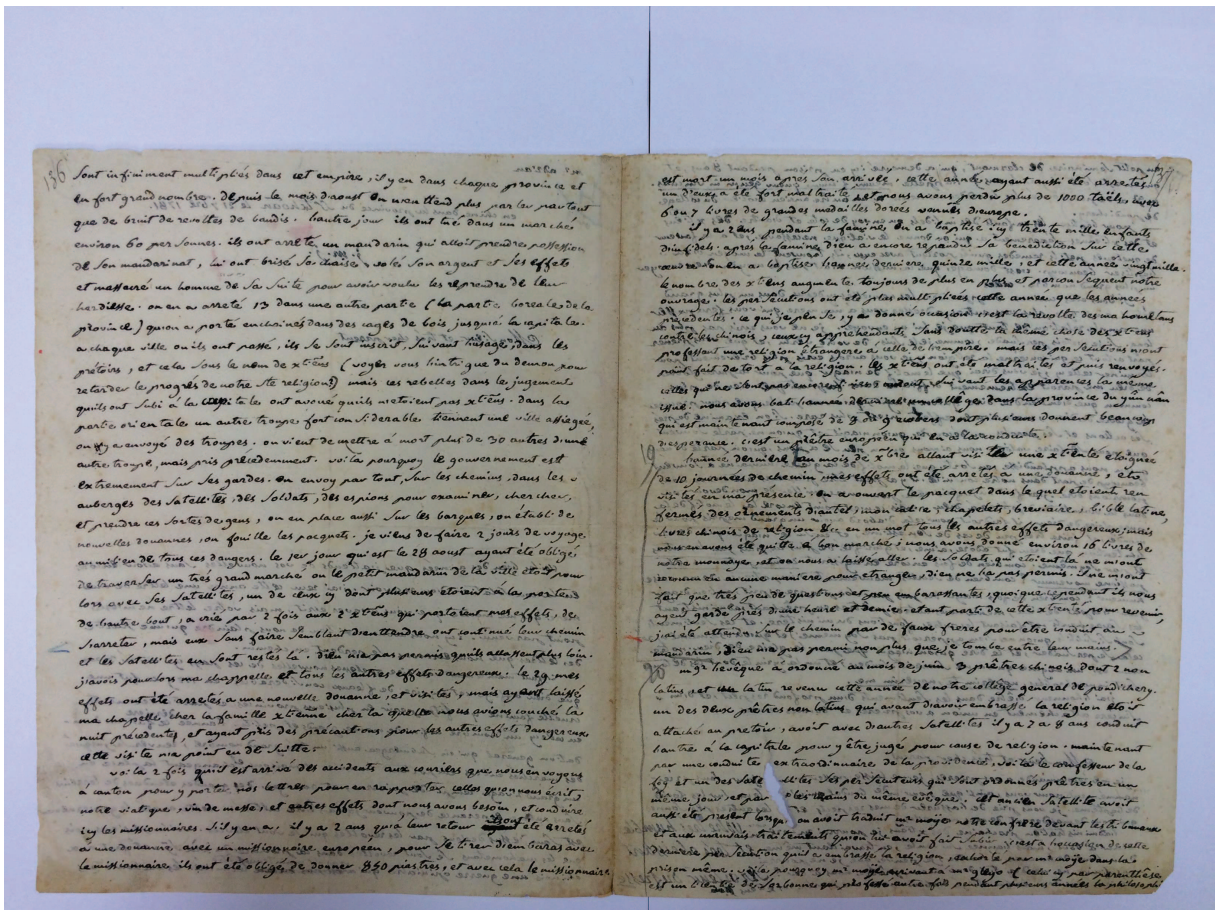 136
sont infiniment multipliés dans cet empire, il y en dans chaque province et
en fort grand nombre. depuis le mois d'aoust on n'entend plus parler partout
que de bruit de revoltes de bandis. l'autre jour ils ont tué dans un marché
environ 60 personnes. ils ont arreté un mandarin qui alloit prendre possession
de son mandarinat, lui ont brisé sa chaise, volés son argent et ses effets
et massacré un homme de sa suite pour avoir voulu les reprendre de leur
hardiesse. on en a arreté 13 dans une autre partie (la partie boreale de la
province) qu'on a porté enchainés dans des cages de bois jusqu'à la capitale.
a chaque ville ou ils ont passé, ils se sont inscrit, suivant l'usage, dans les
prétoirs, et cela sous le nom de xtiens (voyez vous l'intrigue du demon pour
retarder le progrès de notre ste religion!) mais ces rebelles dans le jugement
qu'ils ont subi à la capitale ont avoué qu'ils n'etoient pas xtiens. dans la
partie orientale un autre troupe fort considerable tiennent une ville assiegée,
on y a envoyé des troupes. on vient de mettre à mort plus de 30 autres d'une
autre troupe, mais pris précedemment. voila pourquoy le gouvernement est
extremement sur ses gardes. on envoy par tout, sur les chemins, dans les
auberges des satellites, des soldats, des espions pour examiner, chercher,
et prendre ces sortes de gens, on en place aussi sur les barques, on établi de
nouvelles douannes, on fouille les pacquets. je viens de faire 2 jours de voyage
au milieu de tous ces dangers. le 1er jour qui est le 28 aoust ayant été obligé
de traverser un très grand marché ou le petit mandarin de la ville étoit pour
lors avec ses satellites, un de ceux cy dont plusieurs étoient à la porte
de l'autre bout, a crié par 2 fois aux 2 xtiens qui portoient mes effets, de
s'arreter, mais eux sans faire semblant d'entendre ont continué leur chemin
et les satellites en sont restés là. dieu n'a pas permis qu'ils allassent plus loin.
j'avois pour lors ma chappelle et tous les autres effets dangereux. le 29 mes
effets ont été arretés a une nouvelle douanne, et visités, mais ayant laissé
ma chapelle chez la famille xtienne chez la quelle nous avions couché la
nuit précedente, et ayant pris des précautions pour les autres effets dangereux
cette visite n'a point eu de suitte.
voila 2 fois qu'il est arrivé des accidents aux couriers que nous envoyons
à canton pour y porter nos lettres pour en rapporter celles qu'on nous écrit,
notre viatique, vin de messe, et autres effets dont nous avons besoin, et conduire
icy les missionnaires s'il y en a. il y a 2 ans qu'à leur retour ils ont été arretés
a une douanne avec un missionnaire europeen, pour se tirer d'embaras avec
le missionnaire ils ont été obligé de donner 850 piastres, et avec cela le missionnaire
est mort un mois après son arrivée. cette année ayant aussi été arretés
un d'eux a été fort maltraité nous avons perdu plus de 1000 taëls, avec
6 ou 7 livres de grandes medailles dorées venues d'europe.
il y a 2 ans pendant la famine on a baptisé icy trente mille enfants
d'infidels. après la famine dieu a encore repandu sa benediction sur cette
œuvre. l'on en a baptisé l'année derniere quinze mille, et cette année vingt mille.
le nombre des xtiens augmente toujours de plus en plus et par consequent notre
ouvrage. les persecutions ont été plus multipliées cette année que les années
précedentes. ce qui, je pense, y a donné occasion, c'est la révolte des mahometans
contre les chinois, ceux cy appréhendants sans doutte la même chose des xtiens
professant une religion étrangere a celle de l'empire. mais ces persecutions n'ont
point fait de tort à la religion. les xtiens ont été maltraités et puis renvoyés.
celles qui ne sont pas encore finies auront suivant les apparences la même
issue. nous avons bati l'année derniere un college dans la province du yûn nân
qui est maintenant composé de 8 ou 9 ecoliers dont plusieurs donnent beaucoup
d'esperance. c'est un prêtre européen qui en a la conduite.
19 l'année derniere au mois de xbre allant visiter une xtienté éloignée
de 10 journées de chemin, mes effets ont été arretés a une douanne, et
visités en ma présence. on a ouvert le pacquet dans le quel étoient ren
fermés des ornements d'autel, mon calice, chapelets, breviaire, bible latine,
livres chinois de religion &c en un mot tous les autres effets dangereux, mais
nous en avons été quitte a bon marché; nous avons donné environ 16 livres de
notre monnoye, et on nous a laissé aller. les soldats qui étoient la ne m'ont
reconnu en aucune maniere pour etranger, dieu ne l'a pas permis. Ils ne m'ont
fait que très peu de questions et peu embarassantes, quoique cependant ils nous
ayent gardé près d'une heure et demie. etant parti de cette xtienté pour revenir,
j'ai été attendu sur le chemin par de faux freres pour être conduit au
mandarin, dieu n'a pas permi non plus que je tombe entre leur mains.
20 mgr l'evêque a ordonné au mois de juin 3 prêtres chinois dont 2 non
latins, et un latin revenu cette année de notre collège general de pondichery.
un des deux prêtres non latins qui avant d'avoir embrassé la religion étoit
attaché au prétoir, avoit avec d'autres satellites il y a 7 a 8 ans conduit
l'autre à la capitale pour y être jugé pour cause de religion. maintenant
par une conduite extraordinaire de la providence, voila le confesseur de la
foy et un des satellites ses persecuteurs qui sont ordonnés prêtres en un
même jour, et par les mains du même evêque. cet ancien satellite avoit
aussi été present lorsqu'on avoit traduit mr moÿe notre confrère devant les tribunaux
et aux mauvais traitements qu'on lui avoit fait subir. c'est a l'occasion de cette
derniere persecution qu'il a embrassé la religion, exhorté par mr moÿe dans la
prison même. voila pourquoy mr moÿe ecrivant a mr gleyo (celui cy par parenthèse
est un licentié de sorbonne qui professa autre fois pendant plusieurs années la philosophi